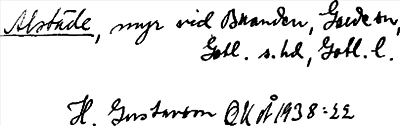 Alstäde, myr vid Buanden, Guldrun,
Gotl. s. hd, Gotl. l.
H. Gustavson OKÅ 1938:22